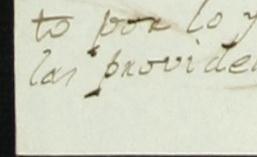 to por lo y
las provide